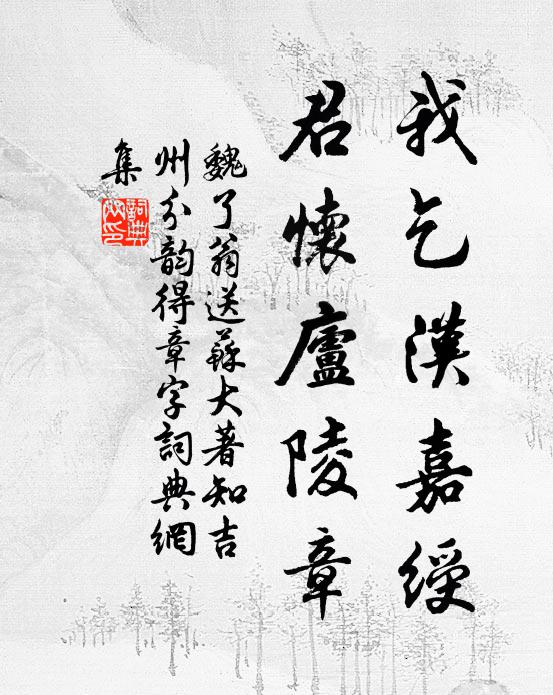 我乞漢嘉綬
君懷廬陵章
魏了翁送蘇大著知吉
州分韵得章字詞典網
集
詞典網印